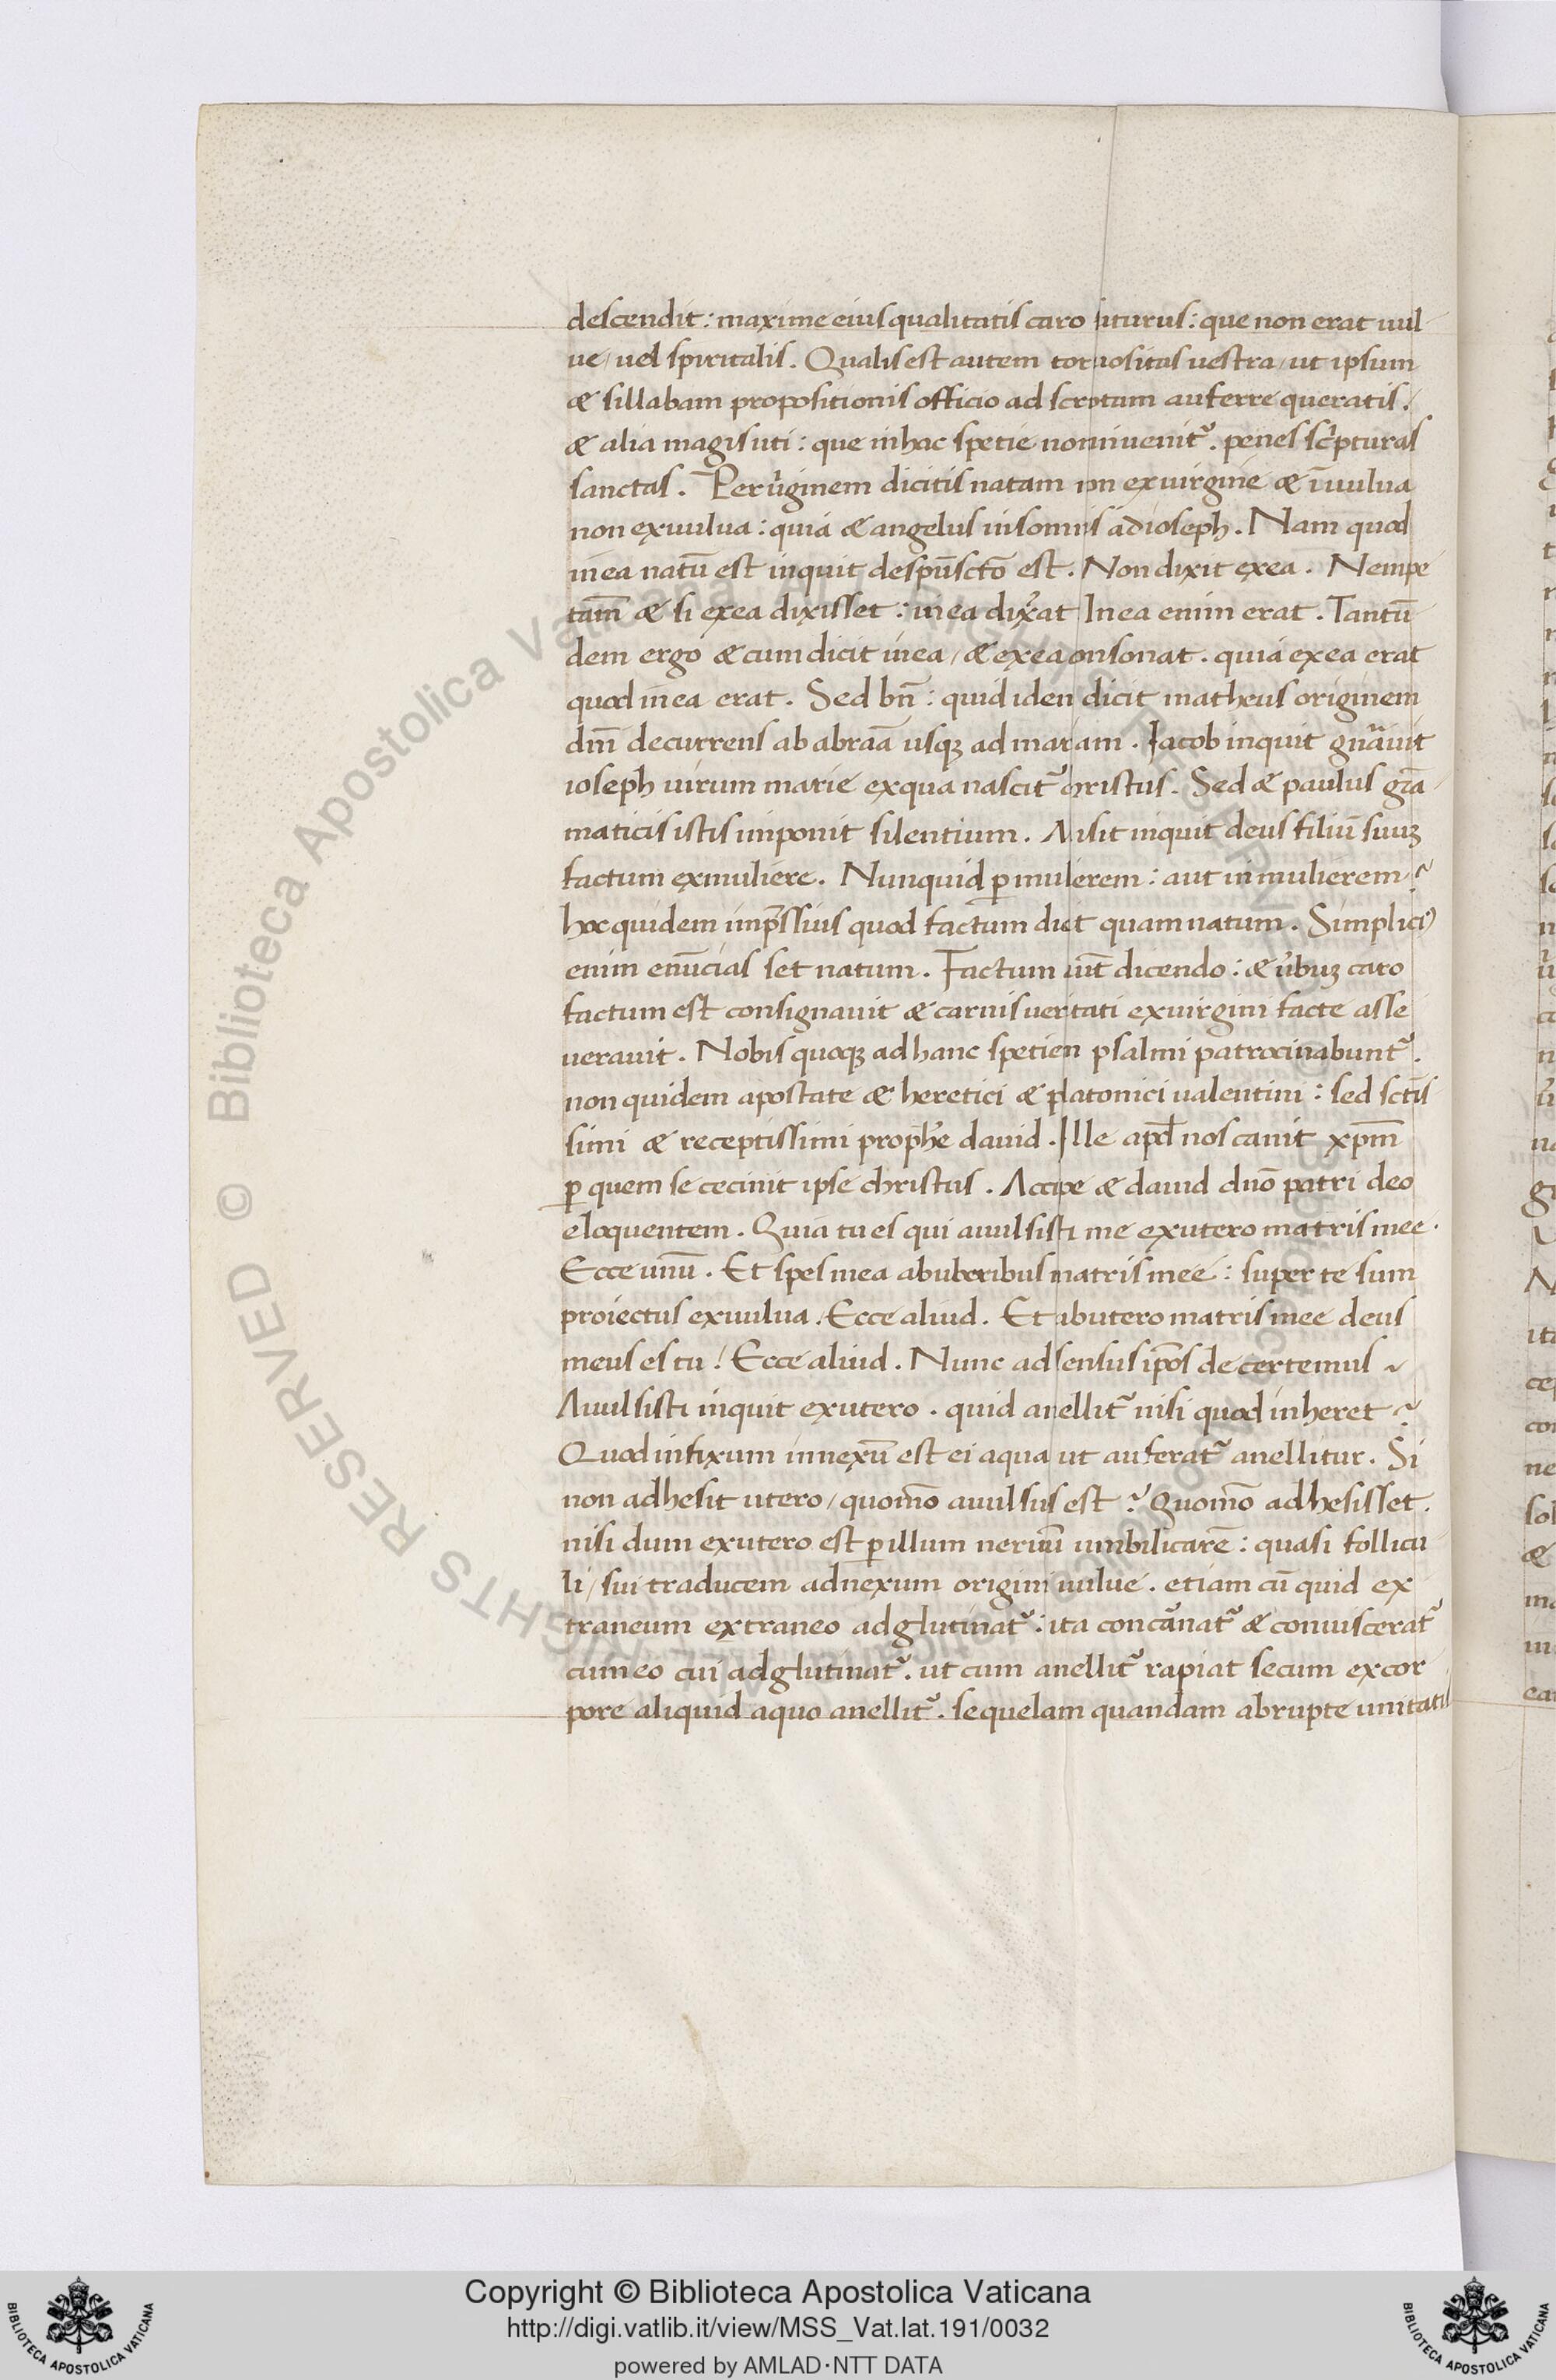 descendit: maxime eius qualitatis caro futurus: que non erat uul
ue/ uel spiritalis. Qualis est autem tortuositas uestra/ ut ipsum
& sillabam propositionis officio ad scrotam auferre queratis.
& alia magis uti: que in hac spetie non inuenit᷑. penes sc̃pturas
sanctas. Per ũginem dicitis natam non ex uirgine & ĩ uulua
non ex uulua: quia & angelus in somnis ad ioseph. Nam quod
in ea natũ est inquit de spũ scto est. Non dixit ex ea. Nempe
tam̃ & si ex ea dixisset: in ea dix̃at In ea enim erat. Tantũ
dem ergo & cum dicit in ea/ & ex ea consonat. quia ex ea erat
quod in ea erat. Sed bñ: quid idem dicit matheus originem
dm̃ decurrens ab abraã usqꝫ ad mariam. Iacob inquit gñauit
ioseph uirum marie ex qua nascit᷑ christus. Sed & paulus grã
maticis istis imponit silentium. Misit inquit deus filiũ suuꝫ
factum ex muliere. Nunquid ꝑ mulierem: aut in mulierem?
hoc quidem imp̃ssius quod factum dicit quam natum. Simplici᷑
enim enũcias set natum. Factum aũt dicendo: & ũbuꝫ caro
factum est consignauit & carnis ueritati ex uirgini facte asse
uerauit. Nobis quoqꝫ ad hanc spetiem psalmi patrocinabunt᷑.
non quidem apostate & heretici & platonici ualentini: sed sctĩs
simi & receptissimi prophe᷑ dauid. Ille apđ nos canit xp̃m
ꝑ quem se cecinit ipse christus. Accipe & dauid dnõ patri deo
eloquentem. Quia tu es qui auulsisti me ex utero matris mee.
Ecce unũ. Et spes mea ab uberibus matris mee: super te sum
proiectus ex uulua. Ecce aliud. Et ab utero matris mee deus
meus es tu! Ecce aliud. Nunc ad sensus ip̃os decertemus ~
Auulsisti inquit ex utero. quid auellit᷑ nisi quod inheret?
Quod infixum innexũ est ei a qua ut auferat᷑ auellitur. Si
non adhesit utero/ quomõ auulsus est? Quomõ adhesisset.
nisi dum ex utero est ꝑ illum neruũ umbilicarẽ: quasi follicu
li/ sui traducem adnexum origini uulue. etiam cũ quid ex
traneum extraneo adglutinat᷑: ita concãnat᷑ & conuiscerat᷑
cum eo cui adglutinat᷑. ut cum auellit᷑ rapiat secum ex cor
pore aliquid a quo auellit᷑. sequelam quandam abrupte unitatis
© Biblioteca Apostolica Vaticana
Copyright © Biblioteca Apostolica Vaticana
http://digi.vatlib.it/view/MSS_Vat.lat.191/0032
powered by AMLAD·NTT DATA
BIBLIOTECA APOSTOLICA VATICANA
BIBLIOTECA APOSTOLICA VATICANA